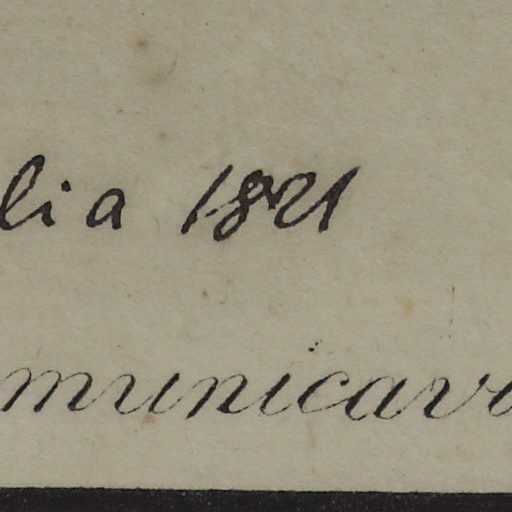 lia 1821
municav